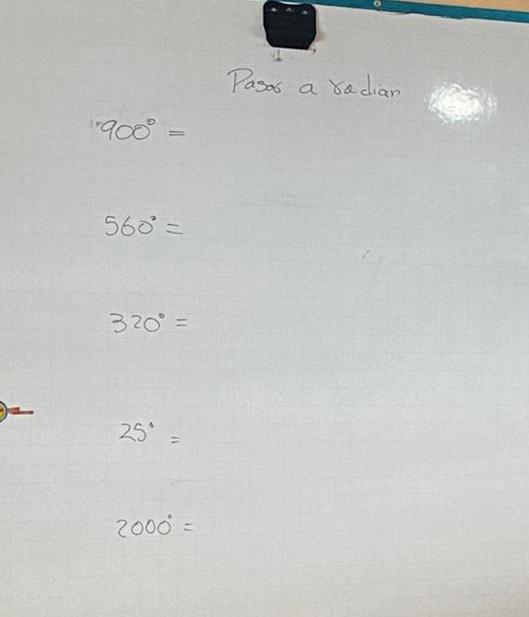 Pasos a radian
900° =
560° =
320° =
25° =
2000° =